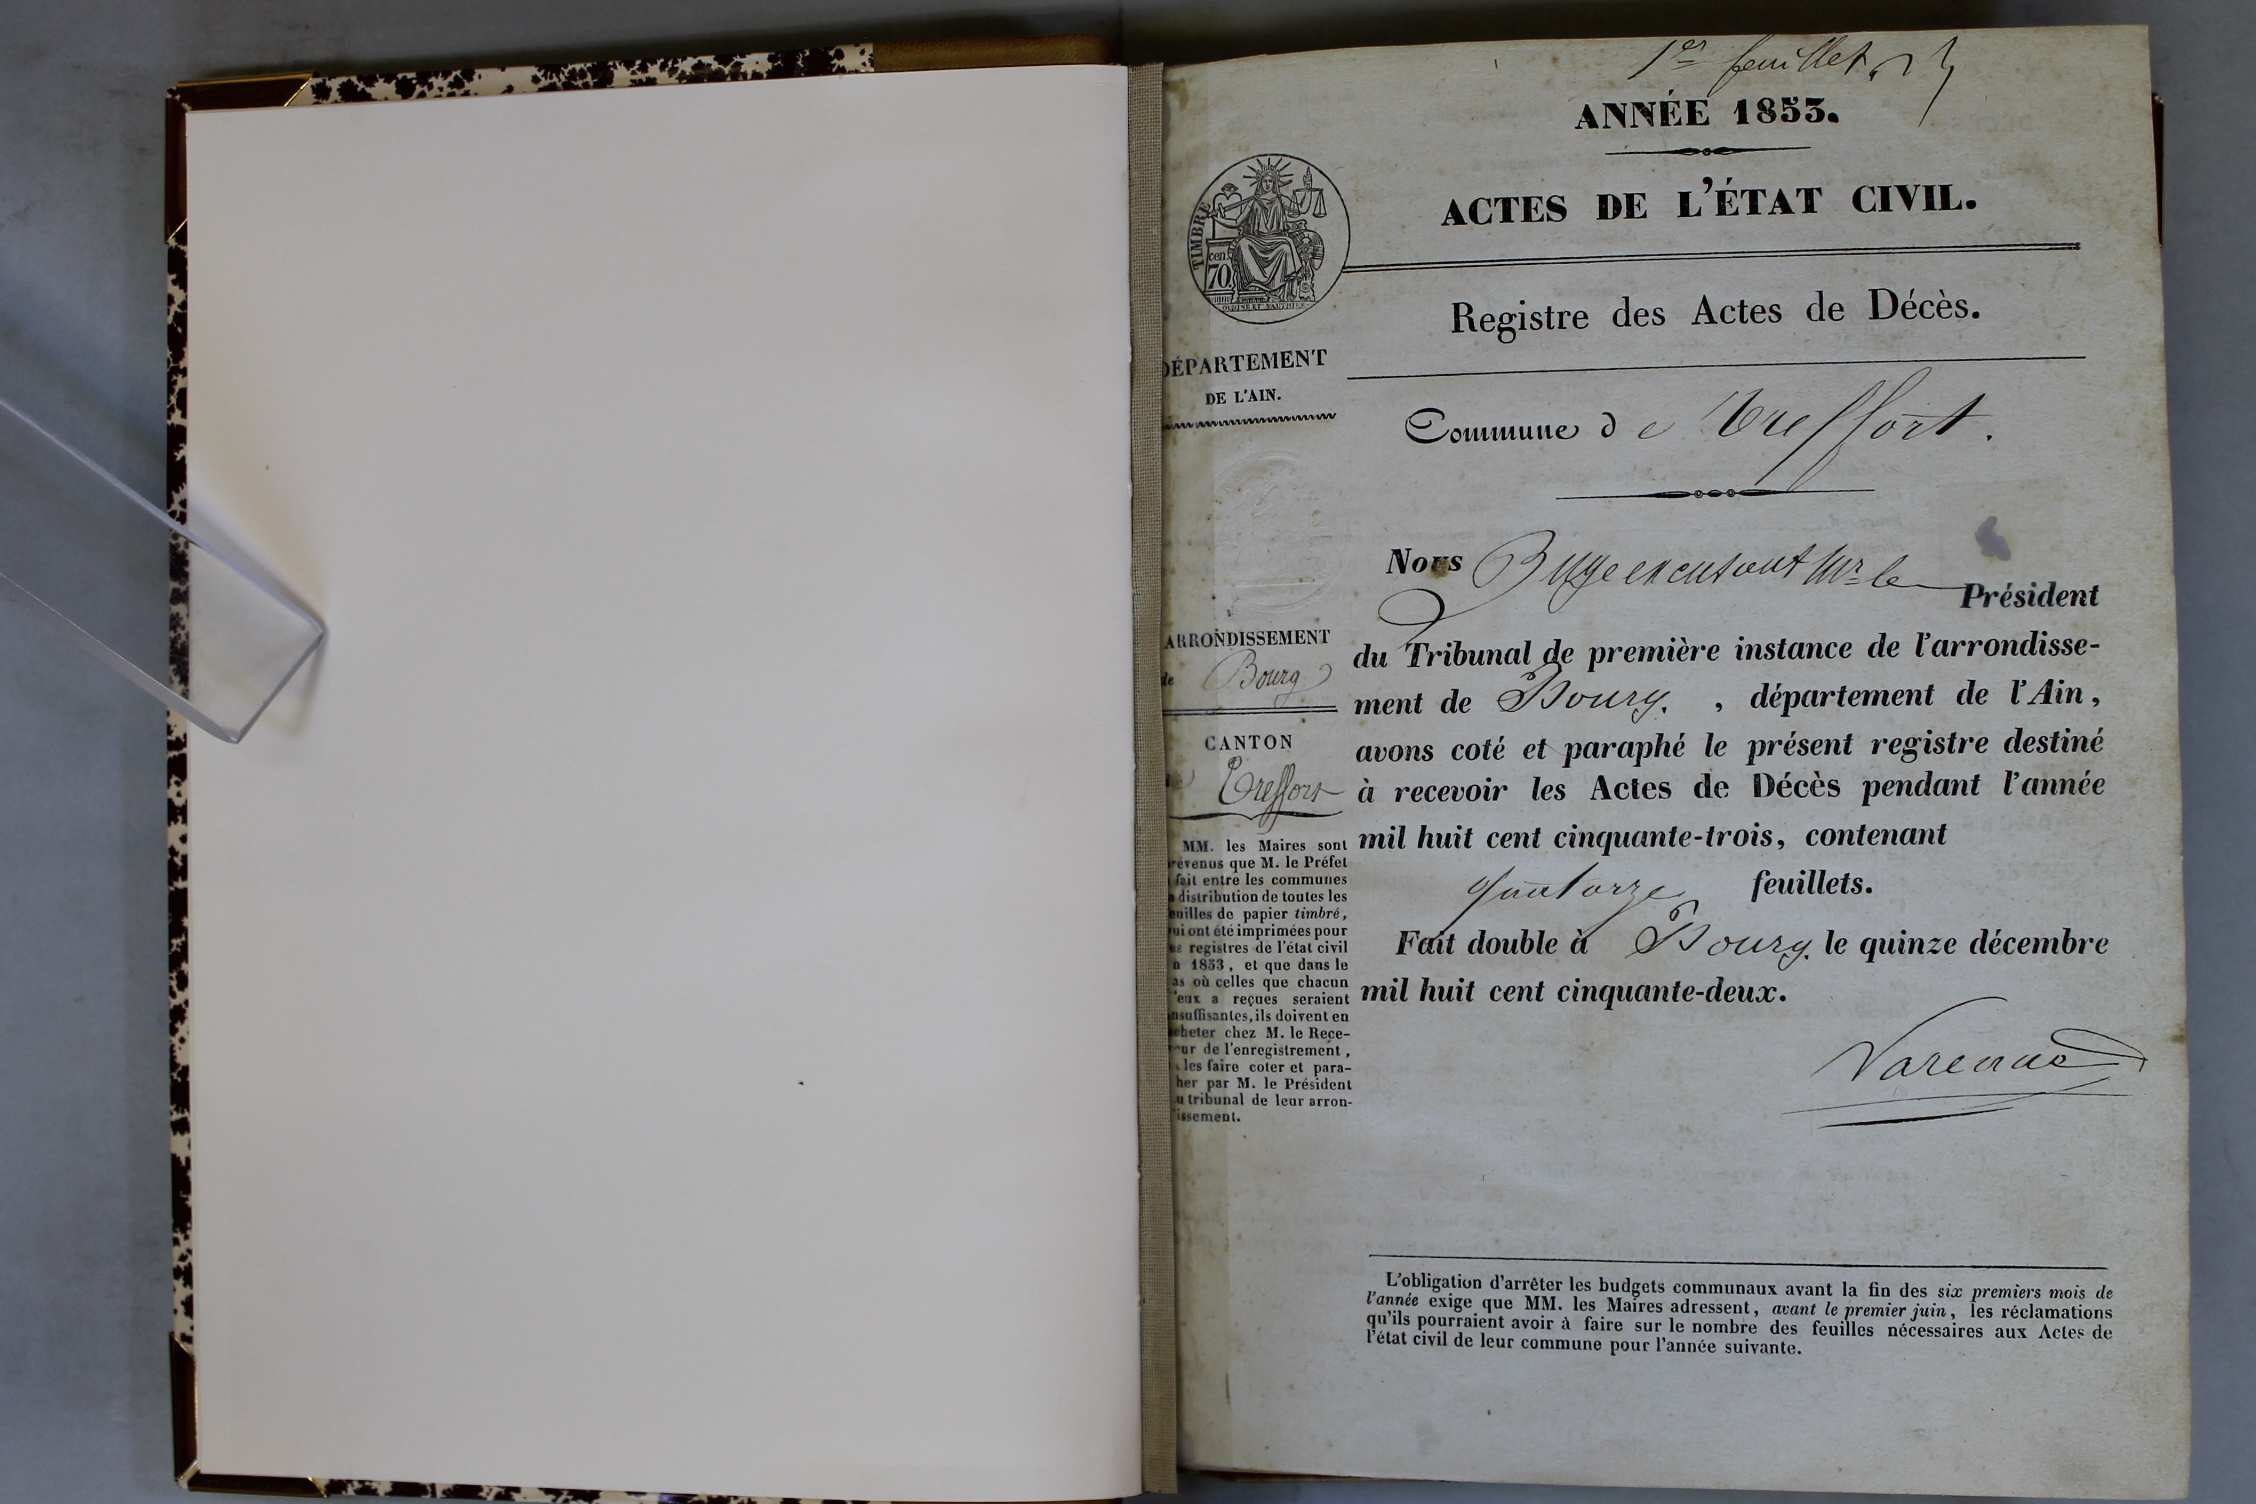 1er feuillet.
ANNÉE 1853.
ACTES DE L'ÉTAT CIVIL.
TIMBRE
cen. 70
Registre des Actes de Décès.
DÉPARTEMENT
DE L'AIN.
Commune de Treffort.
Nous Juge excusant Mr le Président
du Tribunal de première instance de l'arrondisse-
ment de Bourg, , département de l'Ain,
avons coté et paraphé le présent registre destiné
à recevoir les Actes de Décès pendant l'année
mil huit cent cinquante-trois, contenant
quatorze feuillets.
Fait double à Bourg, le quinze décembre
mil huit cent cinquante-deux.
Varenne
ARRONDISSEMENT
de Bourg
CANTON
de Treffort
MM. les Maires sont
révenus que M. le Préfet
fait entre les communes
distribution de toutes les
euilles de papier timbré,
ui ont été imprimées pour
es registres de l'état civil
n 1853, et que dans le
as où celles que chacun
'eux a reçues seraient
nsuffisantes, ils doivent en
cheter chez M. le Rece-
eur de l'enregistrement,
les faire coter et para-
her par M. le Président
u tribunal de leur arron-
issement.
L'obligation d'arrêter les budgets communaux avant la fin des six premiers mois de
l'année exige que MM. les Maires adressent, avant le premier juin, les réclamations
qu'ils pourraient avoir à faire sur le nombre des feuilles nécessaires aux Actes de
l'état civil de leur commune pour l'année suivante.